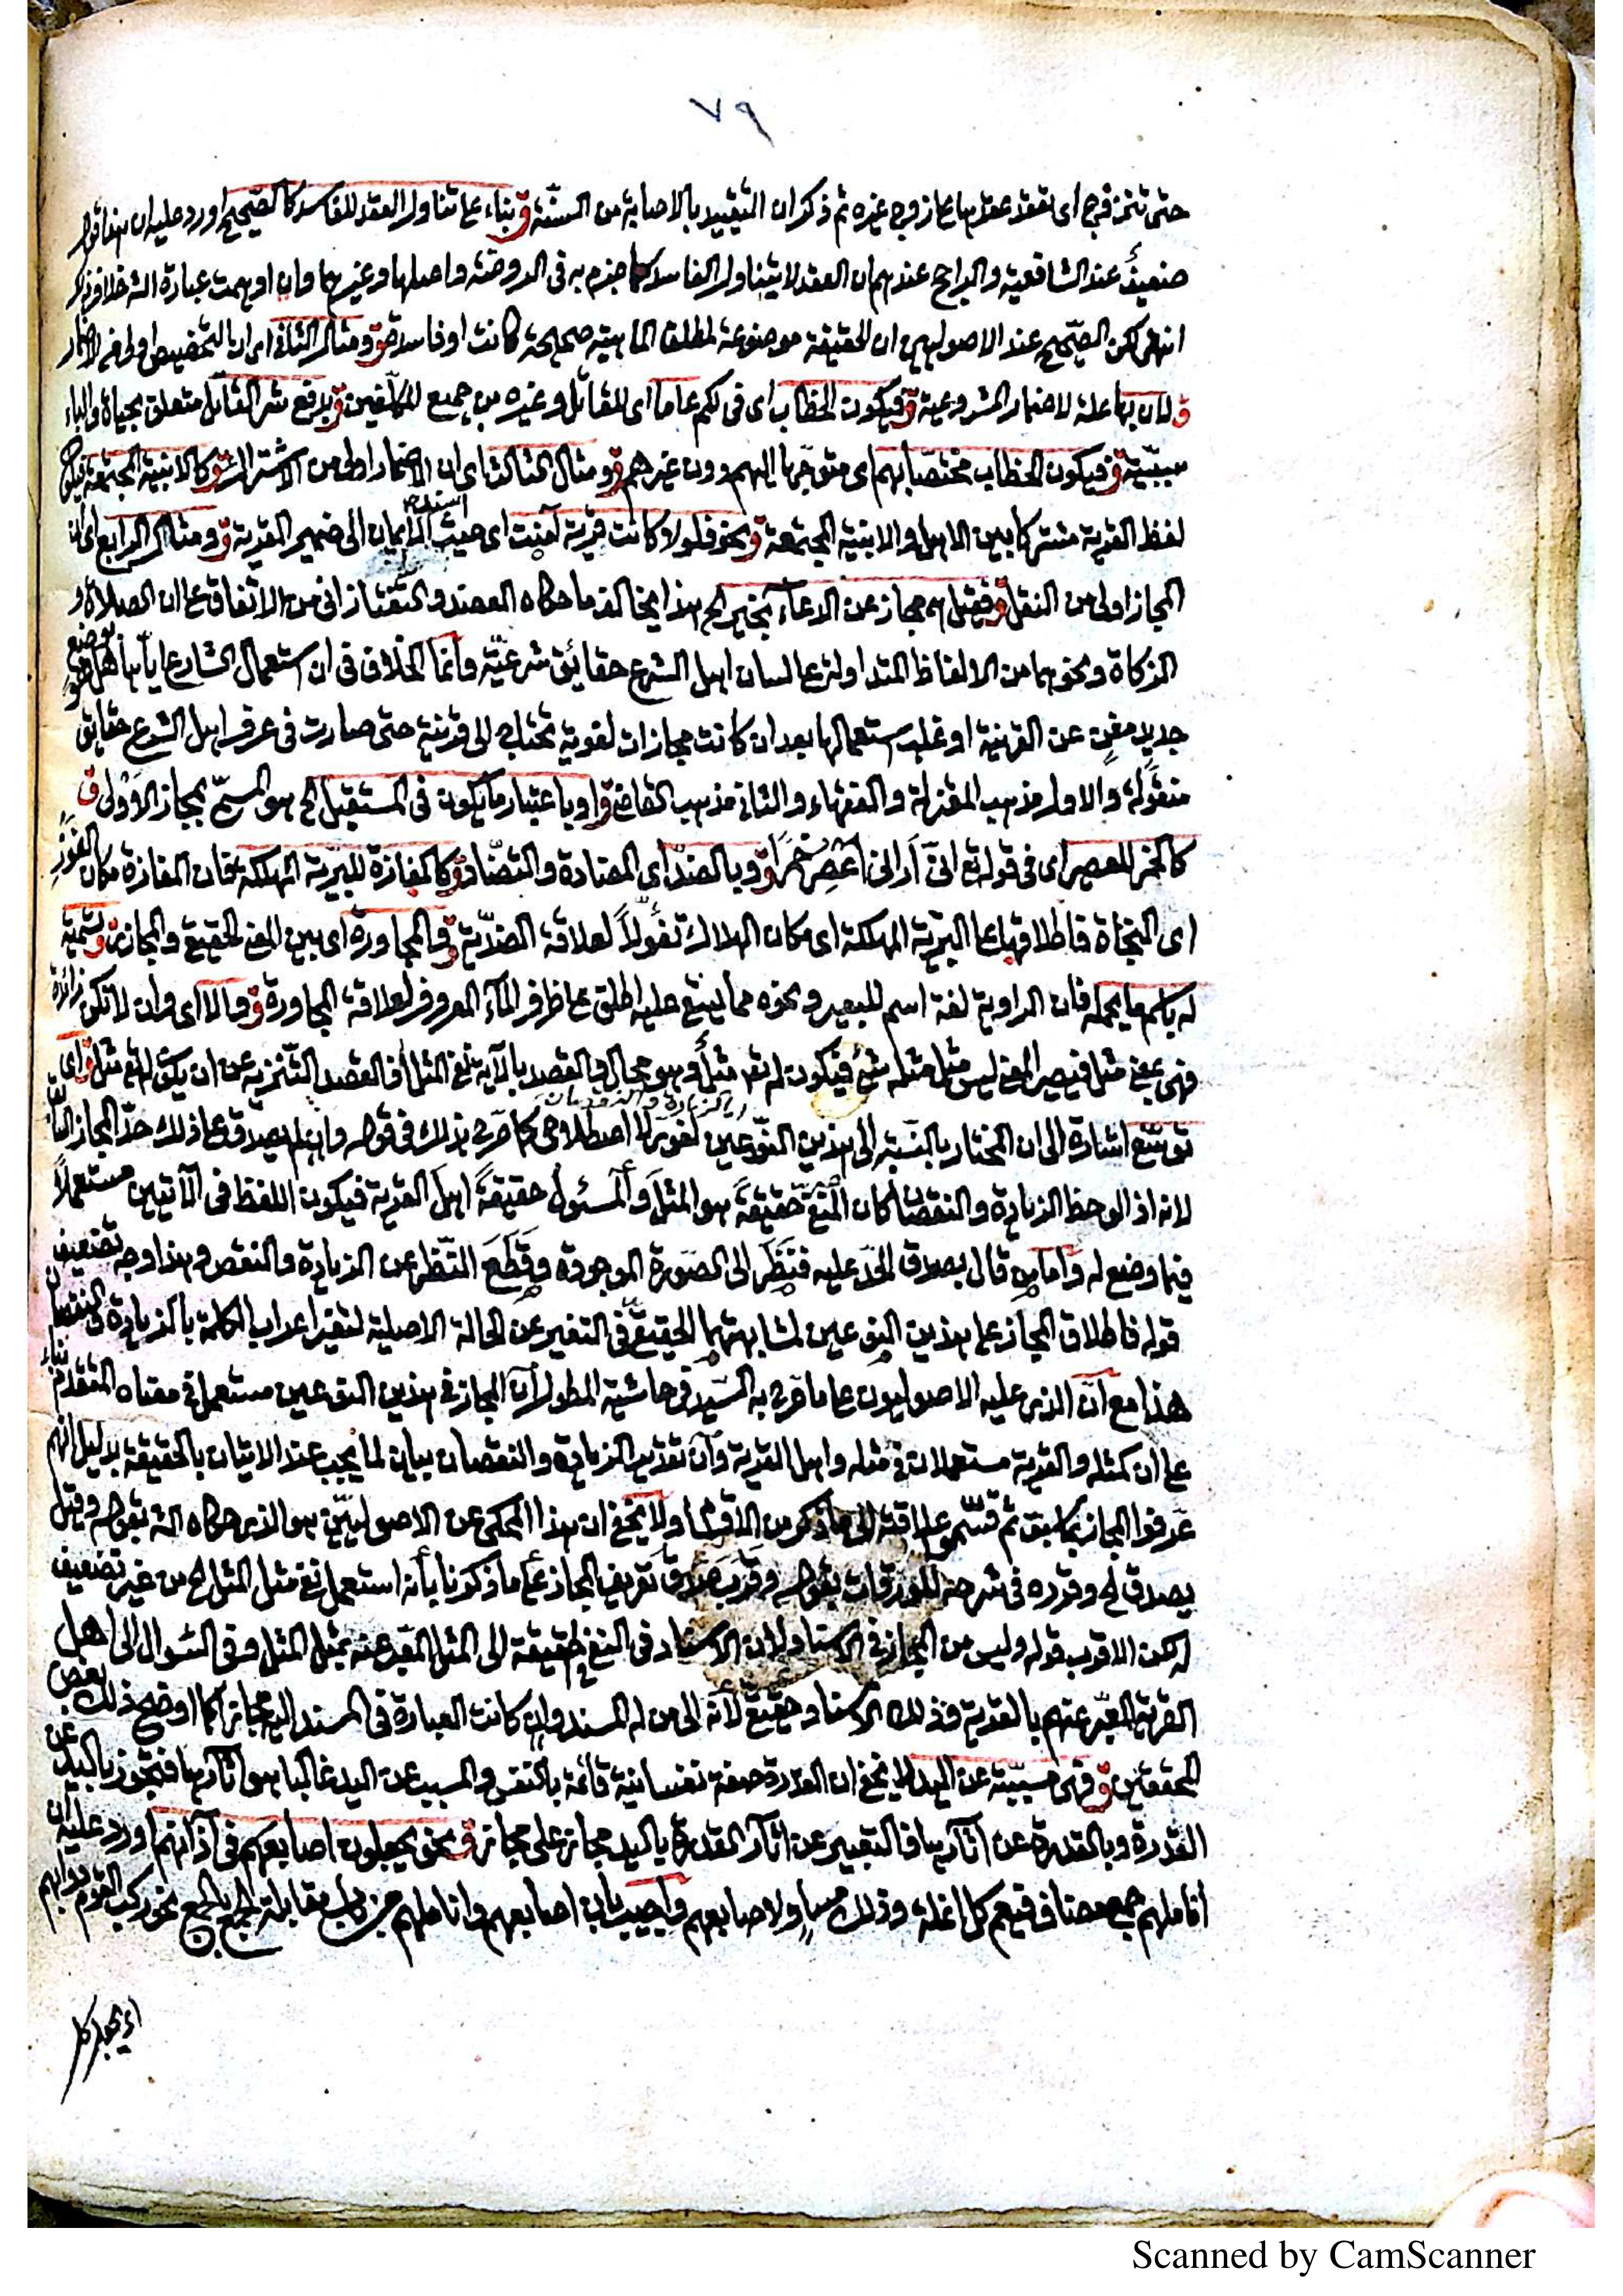 ٧٩
حتى تنحرف اى تعقد عقدها على زوج غيره ثم ذكر ان التقييد بالاصابة من السنّة ق بناء على تناول العقد للفاسد كالصّحيح اورد عليه ان هذا
ضعيفٌ عند الشافعية والراجح عندهم ان العقد لا يتناول الفاسد كما جزم به فى الروضة واصلها وغيرها وان اوهمت عبارة الش خلافه
انتهى لكن الصّحيح عند الاصوليين ان الحقيقة موضوعة لمطلق الماهية صحيحة كانت او فاسدة ق ومثال الثانى اى ان التخصيص اولى من الاضمار
ق لان بها علة لاضمار المشروعية ق فيكون الخطاب اى فى لكم عاما اى للقاتل وغيره من جميع المكلّفين ق يدفع شر القاتل متعلق بحياة والباء
سببيّة ق فيكون الخطاب مختصّا بهم اى متوجّها اليهم دون غيرهم ق ومثال الثالث اى ان الاضمار اولى من الاشتراك ق كالابنية المجتمعة فيكون
لفظ القرية مشتركا بين الاهل والابنية المجتمعة ق ونحو فلولا كانت قرية آمنت اى حيث اسند الايمان الى ضمير القرية ق ومثال الرابع اى ان
المجاز اولى من النقل ق فقيل هى مجاز عن الدعاء بخير الخ هذا يخالف ما حكاه العضد والتّفتازانى من الاتفاق على ان الصلاة و
الزكاة ونحوهما من الالفاظ المتداولة على لسان اهل الشرع حقائق شرعيّة وانّما الخلاف فى ان استعمال الشارع اياها هل هو بوضع
جديد مغنٍ عن القرينة او غلب استعمالها بعد ان كانت مجازات لغوية تحتاج الى قرينة حتى صارت فى عرف اهل الشرع حقائق
منقولة والاول مذهب المعتزلة والفقهاء والثانى مذهب القاضى ق او باعتبار ما يكون فى المستقبل الخ هو المسمّى بمجاز الاَوْلِ ق
كالخمر للعصير اى فى قوله تع انىّ اَرانى اَعْصِرُ خَمْرًا ق وبالضدّ اى المضادة والتضّاد ق كالمفازة للبريّة المهلكة فان المفازة مكان الفَوْزِ
اى النجاة فاطلاقها على البريّة المهلكة اى مكان الهلاك تفوّلاً لعلاقة الضدّية ق والمجاورة اى بين المعنى الحقيقى والمجازى ق تسمية
له باسم ما يحمله فان الراوية لغة اسم للبعير ونحوه مما يستقى عليه اطلق على ظرف الماء المعروف لعلاقة المجاورة ق والا اى وان لا تكن زائدة
فهى بمعنى مثل فيصير المعنى ليس مثل مثله شئ فيكون له تع مثلٌ وهو محال والقصد بالآية نفى المثل اذ القصد التّنزيه عن ان يكون له تع مثل ق اى
توسّع اشارة الى ان المختار بالنسبة الى هذين النوّعين اى الزيادة والنقصان لغوىّ لا اصطلاحى كما صرح بذلك فى قوله وان لم يصدق على ذلك حدّ المجاز
لانه اذا لوحظ الزيادة والنقصان كان المنفى حقيقةً هو المثل والمسئول حقيقةً اهل القرية فيكون اللفظ فى الآيتين مستعملاً
فيما وضع له واما من قال بصدق الحدّ عليه فنَظَر الى الصّورة الموجودة وقَطَعَ النّظر عن الزيادة والنقص وهذا وجه تضعيف
قوله فاطلاق المجاز على هذين النوعين لمشابهتهما الحقيقىّ فى التغير عن الحالة الاصلية لتغير اعراب الكلمة بالزيادة او النقصان
هذا مع انّ الذى عليه الاصوليون على ما قرره به السّيد فى حاشية المطول انّ المجاز فى هذين النوعين مستعمل فى معناه المتقدم بناء
على ان كمثله والقرية مستعملان فى مثله واهل القرية وانّ تقدير الزيادة والنقصان بيان لما يجب عند الاتيان بالحقيقة بدليل انهم
عرفوا المجاز بما سبق ثم قسّموا علاقته الى ما ذكر من الاقسام ولا يخفى ان هذا المحكى عن الاصوليّين هو الذى حكاه الش بقوله وقيل
يصدق الخ وقرره فى شرحه للورقات بقوله وقرب صدق تعريف المجاز على ما ذكرنا بأنه استعمل نفى مثل المثل الخ من غير تضعيف
له لكن الاقرب قوله وليس من المجاز فى الاسناد لان الاسناد فى النفى حقيقة الى المثل المعبّر عنه بمثل المثل وفى السّوال الى اهل
القرية المعبّر عنهم بالقرية فذلك الاسناد حقيقى لانّه الى من له المسند وان كانت العبارة فى المسند اليه مجازا كما اوضح ذلك بعض
المحققين ق فهى مسببّة عن اليد لا يخفى ان القدرة صفة نفسانية قائمة بالنفس والمسبب عن اليد غالبا هو آثارها فتجوز باليد عن
القدرة وبالقدرة عن آثارها فالتعبير عن آثار القدرة باليد مجاز على مجاز ق نحو يجعلون اصابعهم فى آذانهم اورد عليه ان
اناملهم جمع مضاف فيعم كل انملة وذلك مساوٍ لاصابعهم واجيب بأن اصابعهم واناملهم من باب مقابلة الجمع بالجمع نحو ركب القوم دوابهم
اى يجعل كل
Scanned by CamScanner